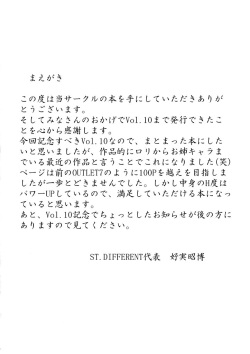 まえがき
この度は当サークルの本を手にしていただきありが
とうございます。
そしてみなさんのおかげでVol.10まで発行できたこ
とを心から感謝します。
今回記念すべきVol.10なので、まとまった本にした
いと思いましたが、作品的にロリからお姉キャラま
でいる最近の作品と言うことでこれになりました(笑)
ページは前のOUTLET7のように100Pを越えを目指しま
したが一歩とどきませんでした。しかし中身のH度は
パワーUPしているので、満足していただける本になっ
ていると思います。
あと、Vol.10記念でちょっとしたお知らせが後の方に
ありますので見てください。
ST.DIFFERENT代表 好実昭博